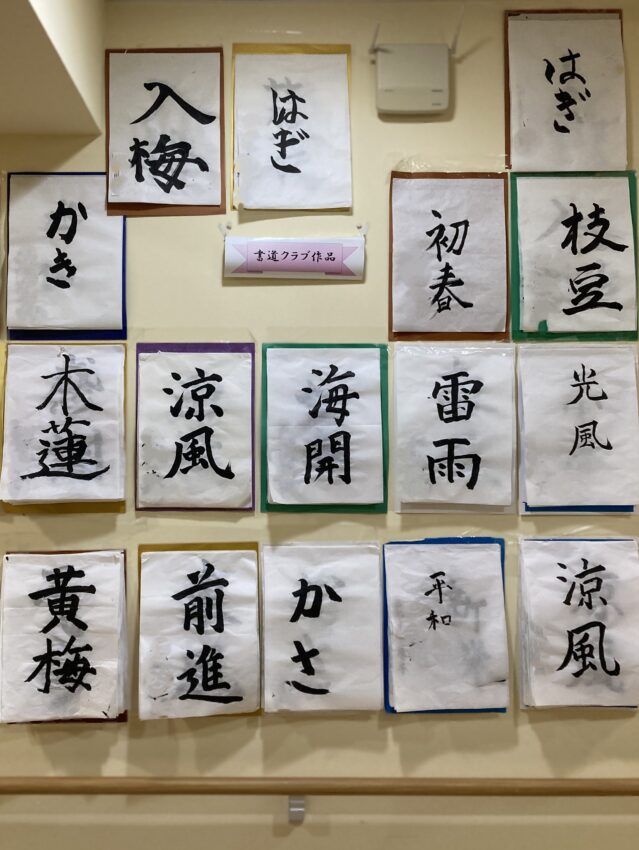 入梅
はぎ
はぎ
かき
書道クラブ作品
初春
枝豆
木蓮
涼風
海開
雷雨
光風
黄梅
前進
かさ
平和
涼風